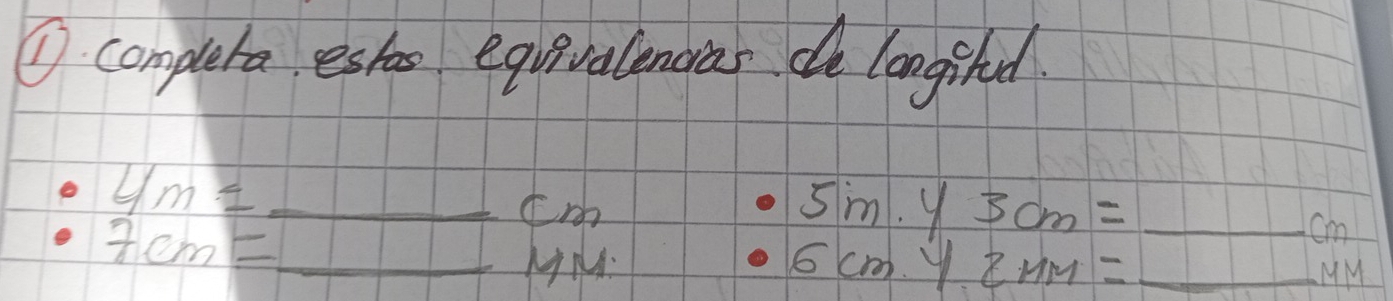 ① completa estas equivalencias de longitud.
• 4m = ________ cm
• 7cm = ________ MM.
• 5m. y 3cm = ______ cm
• 6 cm. y. 2 MM = ______ MM